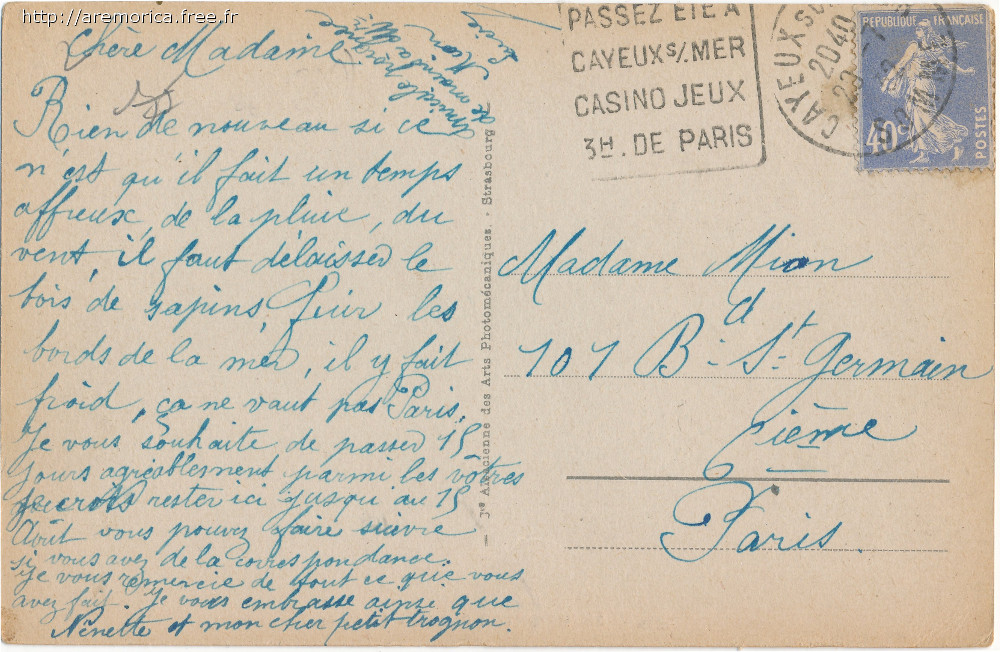 http://aremorica.free.fr
Chère Madame
Rien de nouveau si ce
n'est qu'il fait un temps
affreux, de la pluie, du
vent, il faut délaisser le
bois de sapins, pour les
bords de la mer, il y fait
froid, ça ne vaut pas Paris.
Je vous souhaite de passer 15
jours agréablement parmi les vôtres
je crois rester ici jusqu'au 15
Août vous pouvez faire suivre
si vous avez de la correspondance.
Je vous remercie de tout ce que vous
avez fait. Je vous embrasse ainsi que
Nénette et mon cher petit trognon.
amicale
Mion
Jte Alsacienne des Arts Photomécaniques. - Strasbourg
PASSEZ ETE A
CAYEUX S/. MER
CASINO JEUX
3H. DE PARIS
CAYEUX S
2040
SOMME
REPUBLIQUE FRANÇAISE
40c
POSTES
Madame Mion
101 Bd St. Germain
Paris.